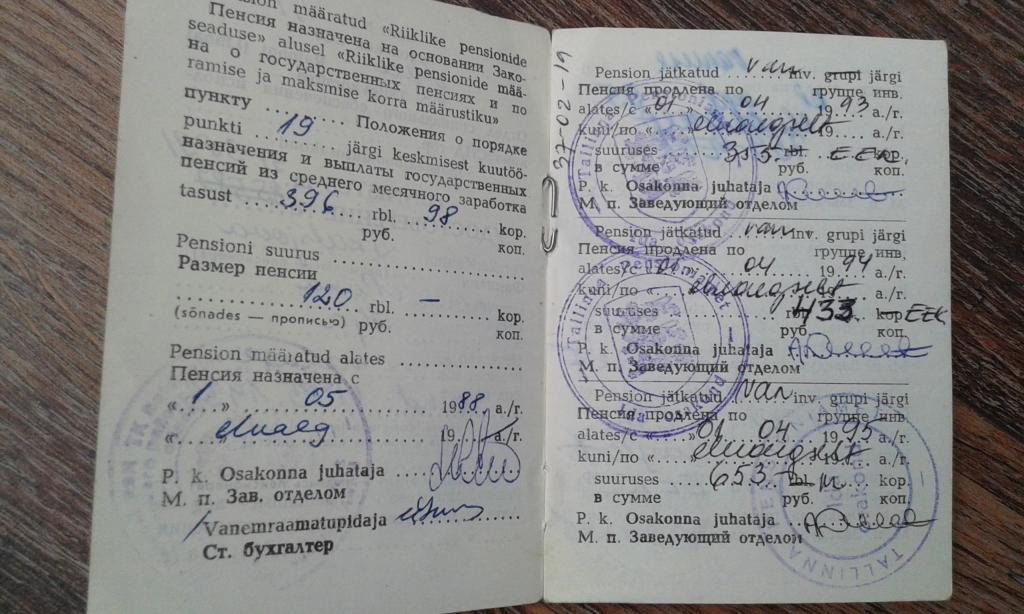 Pension määratud «Riiklike pensionide
Пенсия назначена на основании Зако-
seaduse» alusel «Riiklike pensionide mää-
на о государственных пенсиях и по
ramise ja maksmise korra määrustiku»
пункту ............ Положения о порядке
punkti ... 19 ... järgi keskmisest kuutöö-
назначения и выплаты государственных
пенсий из среднего месячного заработка
tasust ... 396 ... rbl. 98 ... kop.
руб. коп.
Pensioni suurus
Размер пенсии
120 ... rbl. — kop.
(sõnades — прописью) руб. коп.
Pension määratud alates
Пенсия назначена с
« 1 » ... 05 ... 1988. a./r.
« eluaeg ... 19 ... a./r.
P. k. Osakonna juhataja
М. п. Зав. отделом
Vanemraamatupidaja
Ст. бухгалтер
37-02-19
Pension jätkatud ... van inv. grupi järgi
Пенсия продлена по группе инв.
alates/с «01 04 1993 a./r.
kuni/по « eluaegselt 19 a./r.
suuruses 355. rbl. EEK kop.
в сумме руб. коп.
P. k. Osakonna juhataja
М. п. Заведующий отделом
Pension jätkatud ... van inv. grupi järgi
Пенсия продлена по группе инв.
alates/с «01 04 1994 a./r.
kuni/по « eluaegselt a./r.
suuruses 433 kop EEK
в сумме руб. коп.
P. k. Osakonna juhataja
М. п. Заведующий отделом
Pension jätkatud van inv. grupi järgi
Пенсия продлена по группе инв
alates/с « » 01 04 1995 a./r.
kuni/по « eluaegselt a./r.
suuruses 653 rbl. kop.
в сумме руб. коп.
P. k. Osakonna juhataja
М. п. Заведующий отделом
Tallinna Pensioniamet
Ida osakond
Tallinna Pensioniamet
Ida osakond
TALLINNA